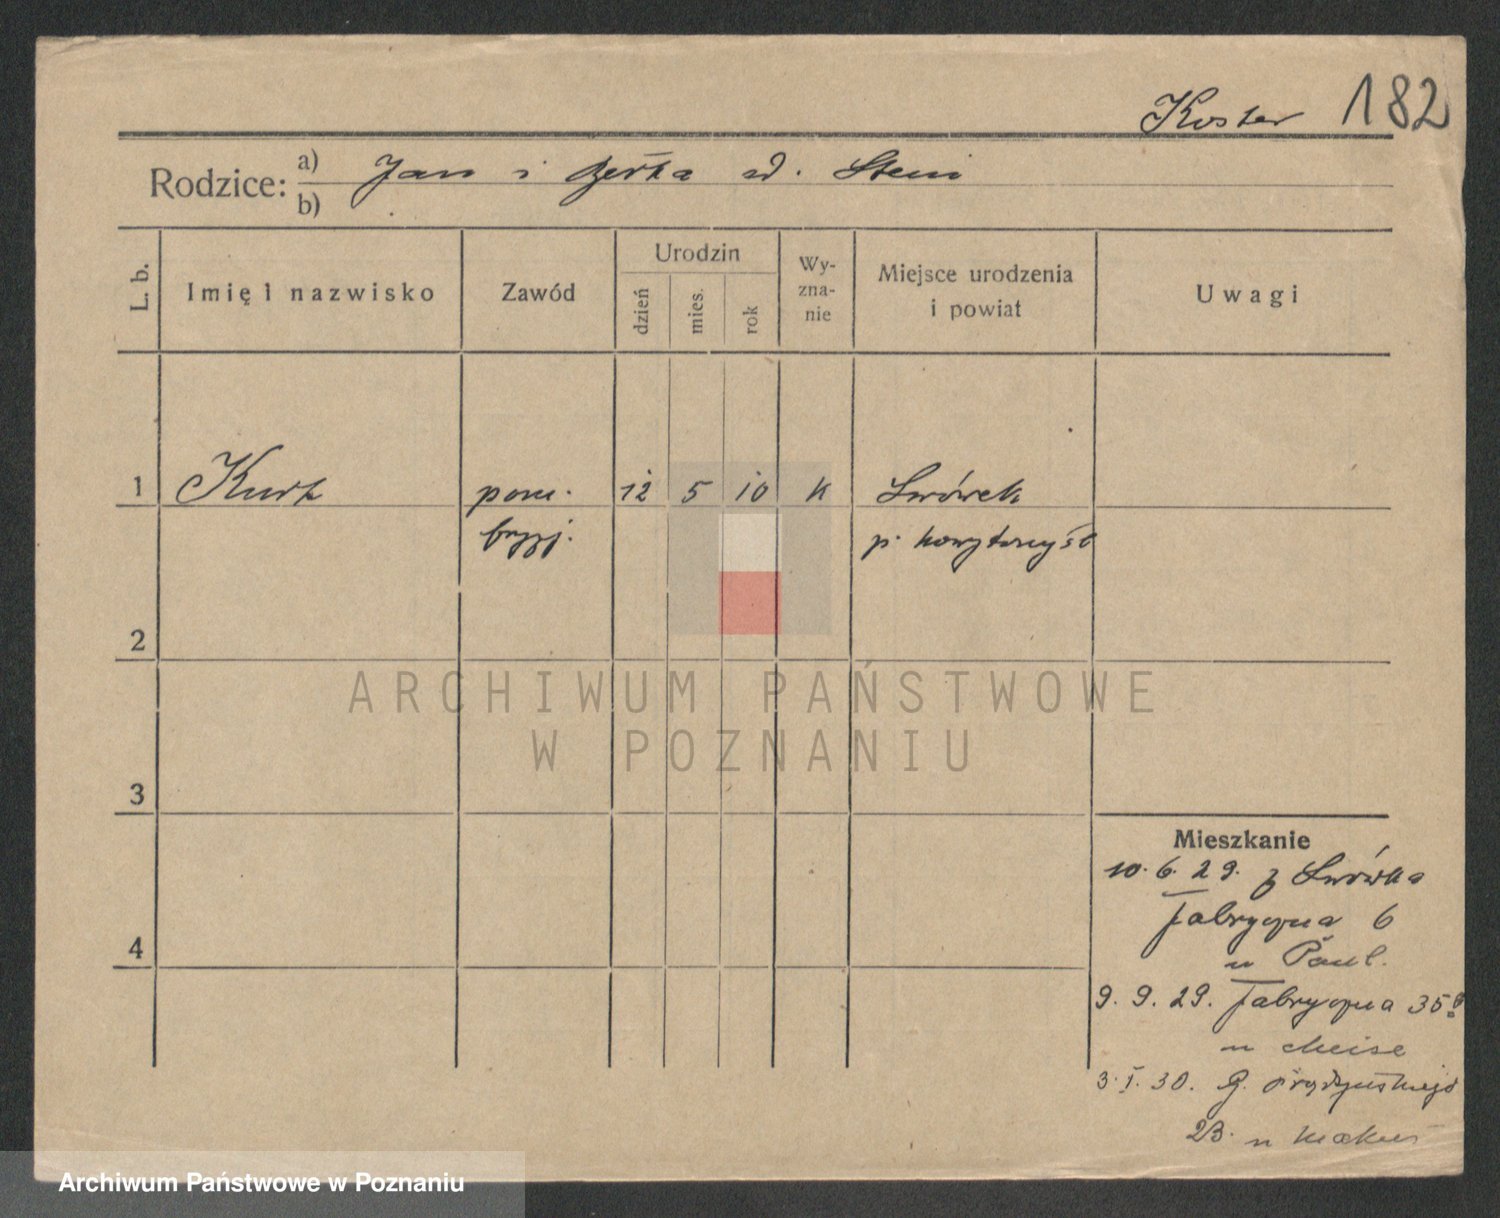 Koster 182
Rodzice: a) Jan i Berta ul. Stein
b)
L. b. Imię i nazwisko Zawód Urodzin dzień mies. rok Wy-zna-nie Miejsce urodzenia i powiat Uwagi
1 Kurt pom. 12 5 10 k Lwówek
fryzj. p. nowytomyśl
2
ARCHIWUM PAŃSTWOWE
W POZNANIU
3
Mieszkanie
10. 6. 29. z Lwówka
Fabryczna 6
4
u Paul.
9. 9. 29. Fabryczna 35
u
3. I. 30. G.
23. u
Archiwum Państwowe w Poznaniu